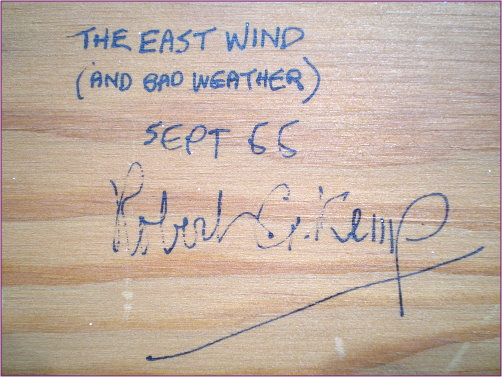 THE EAST WIND
(AND BAD WEATHER)
SEPT 65
Robert G. Kemp